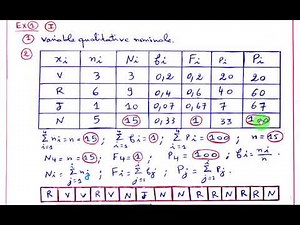 Ex① I
① variable qualitative nominale.
②
xi ni Ni fi Fi pi Pi
V 3 3 0,2 0,2 20 20
R 6 9 0,4 0,6 40 60
J 1 10 0,07 0,67 7 67
N 5 15 0,33 1 33 100
Σ ni = n = 15 ; Σ fi = 1 ; Σ Pi = 100 ; n = 15
N4 = n = 15 ; F4 = 1 ; P4 = 100 ; fi = ni/n
Ni = Σ nj ; Fi = Σ fj ; Pj = Σ Pj.
R V V R N J N N R R R N R R N